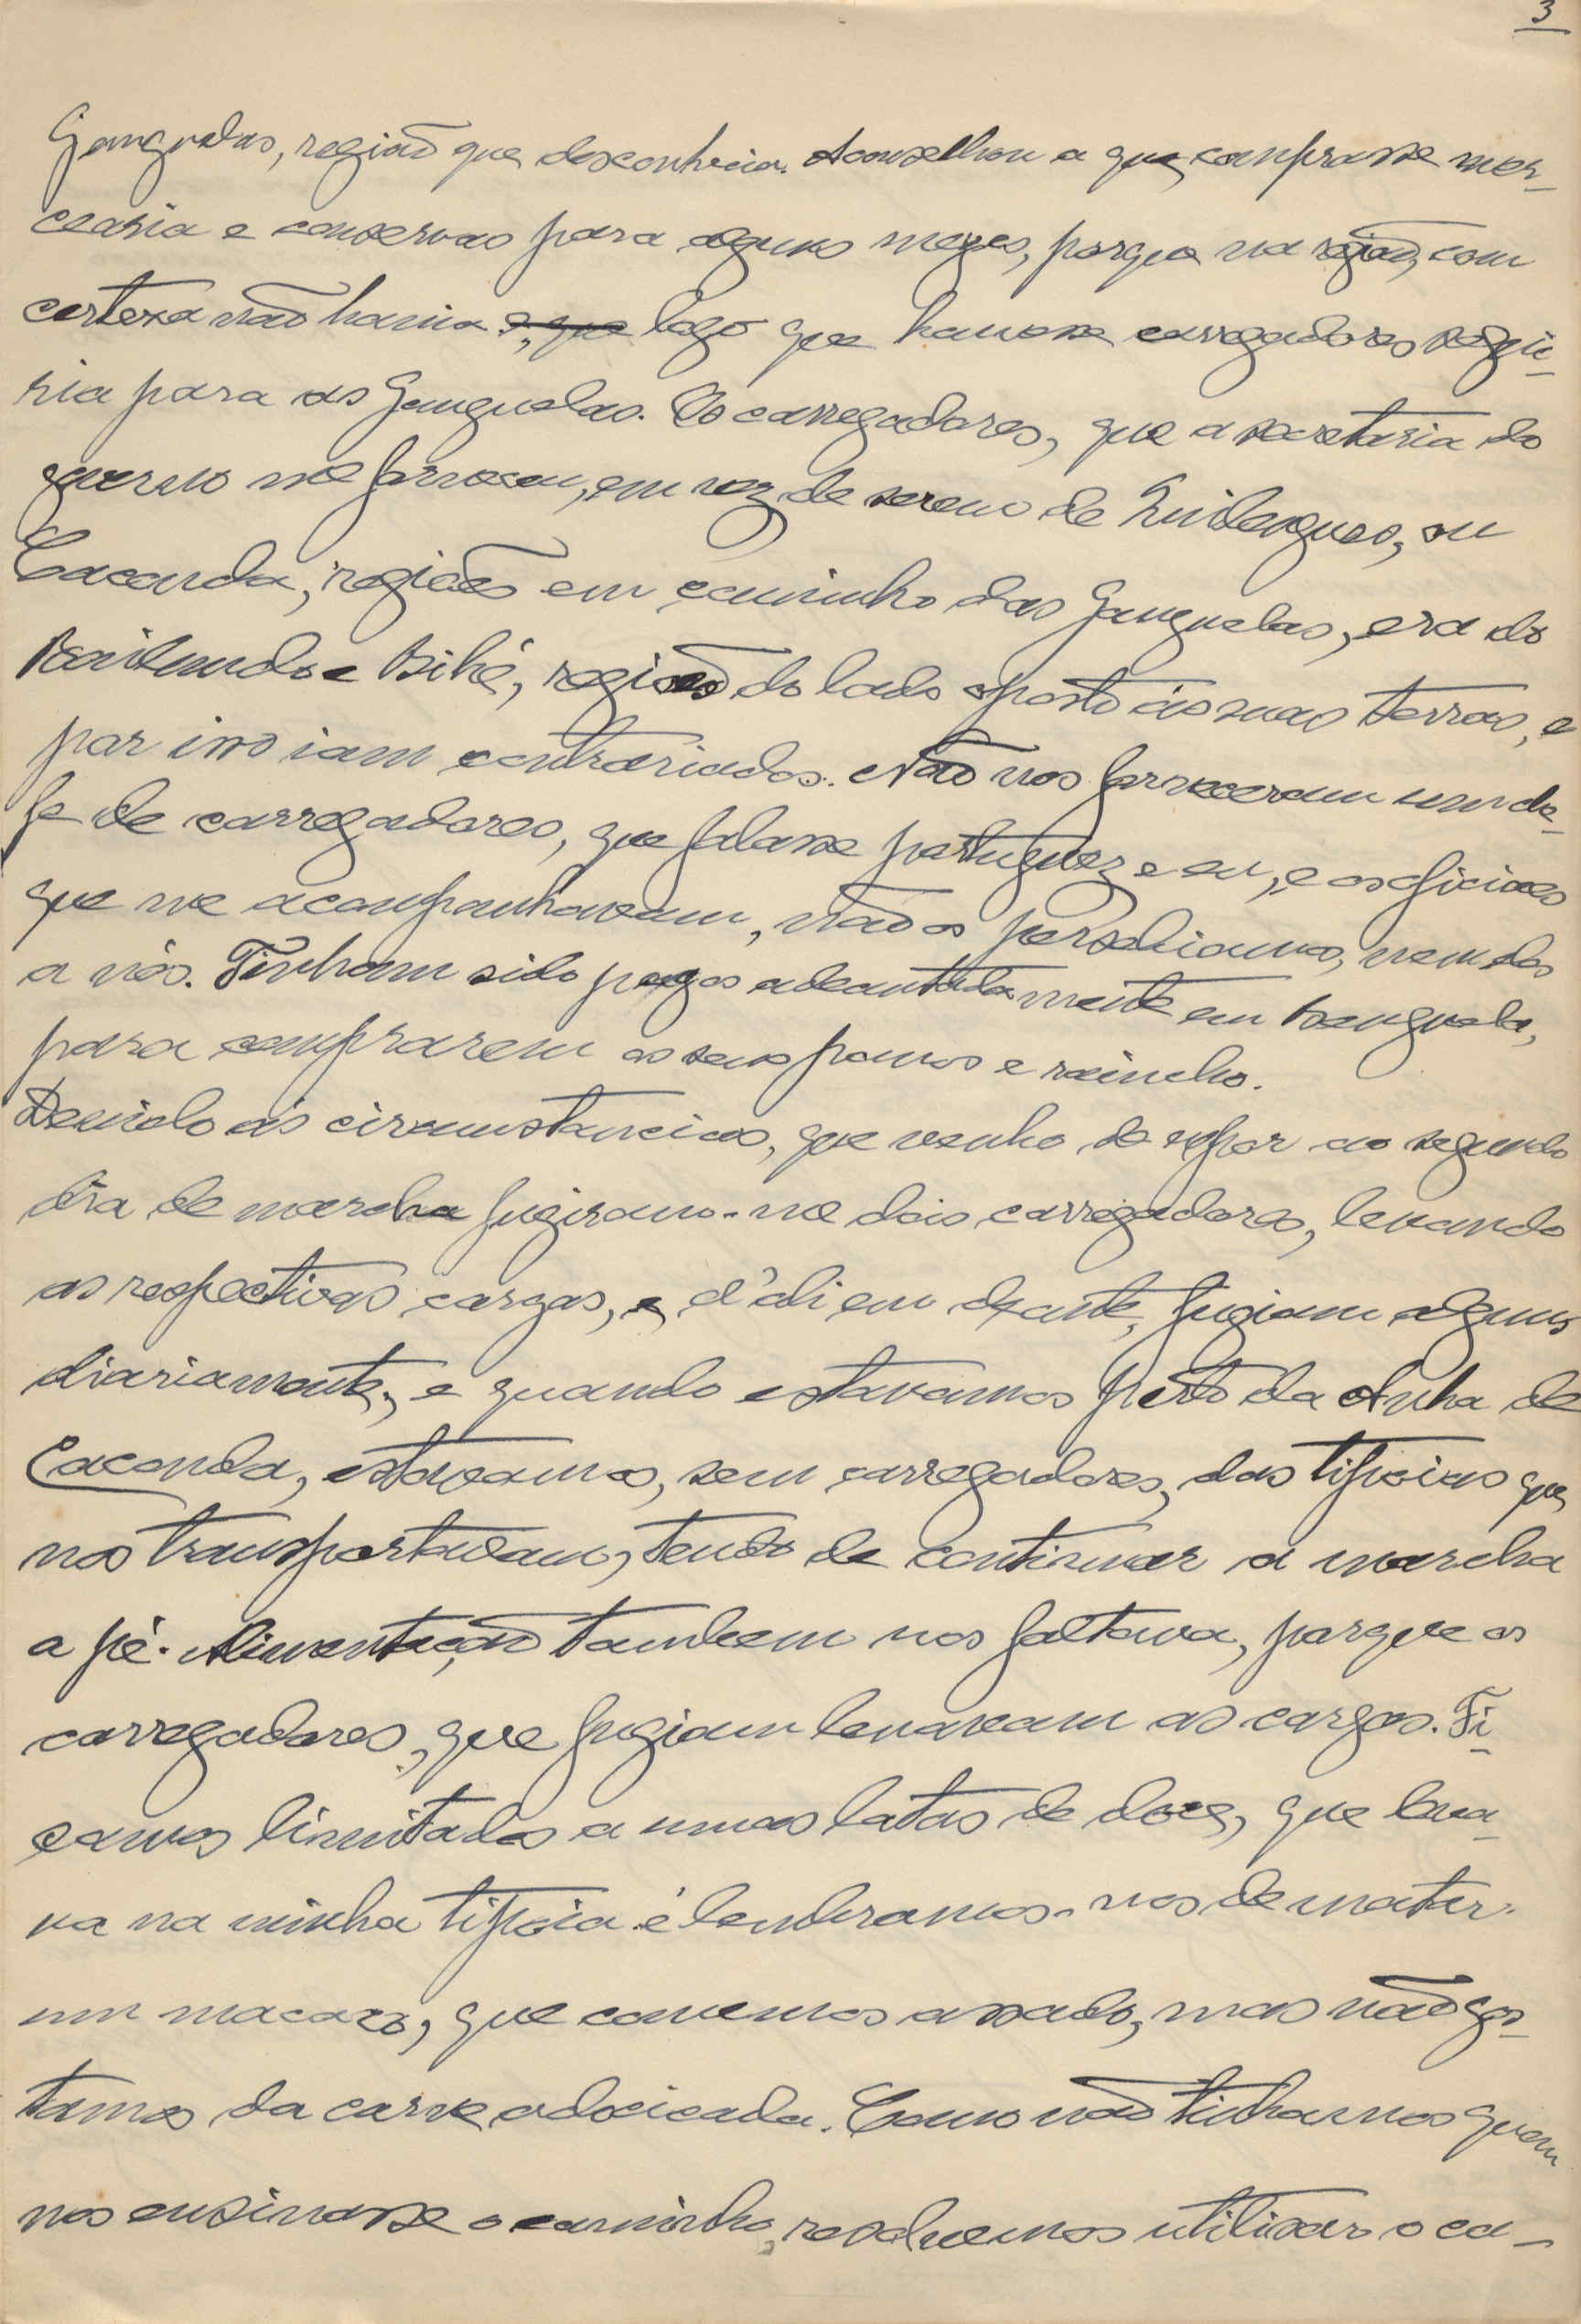 3
Ganguelas, região que desconhecia. Aconselhou a que comprasse mer-
cearia e conservas para alguns mezes, porque na região, com
certeza não havia e, que logo que houvesse carregadores segui-
ria para as Ganguelas. Os carregadores, que a secretaria do
governo me forneceu, em vez de serem de Quilengues, ou
Caconda, regiões em caminho das Ganguelas, era do
Bailundo e Bihé, regiões do lado oposto ás suas terras, e
por isso iam contrariados. Não nos forneceram um che-
fe de carregadores, que falasse portuguez e eu, e os oficiaes
que me acompanhavam, não os percebiamos, nem eles
a nós. Tinham sido pagos adeantadamente em Benguela,
para comprarem os seus panos e rancho.
Devido ás circumstancias, que venho de expor ao segundo
dia de marcha fugiram-me dois carregadores, levando
as respectivas cargas, e, d'ali em deante, fugiam alguns
diariamente, e quando estavamos perto da Anha de
Caconda, estavamos, sem carregadores, das tipoias que
nos transportavam, tendo de continuar a marcha
a pé. Alimentação tambem nos faltava, porque os
carregadores, que fugiam levavam as cargas. Fi-
camos limitados a umas latas de doce, que leva-
va na minha tipoia e lembramos-nos de matar
um macaco, que comemos assado, mas não gos-
tamos da carne adocicada. Como não tinhamos quem
nos ensinasse o caminho, resolvemos utilisar o ca-